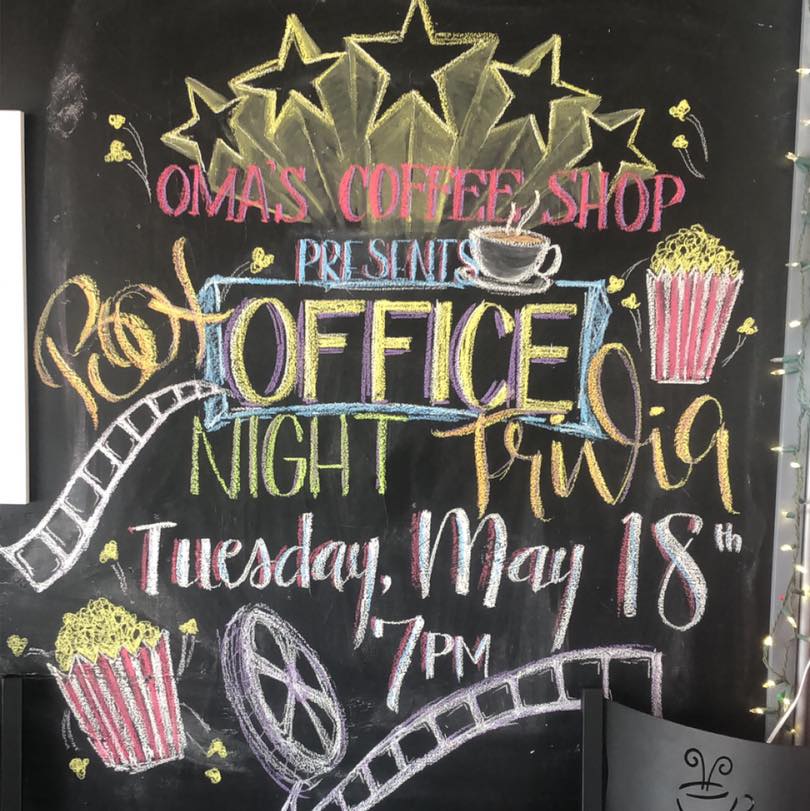 OMA'S COFFEE SHOP
PRESENTS
Box OFFICE
NIGHT Trivia
Tuesday, May 18th
7PM